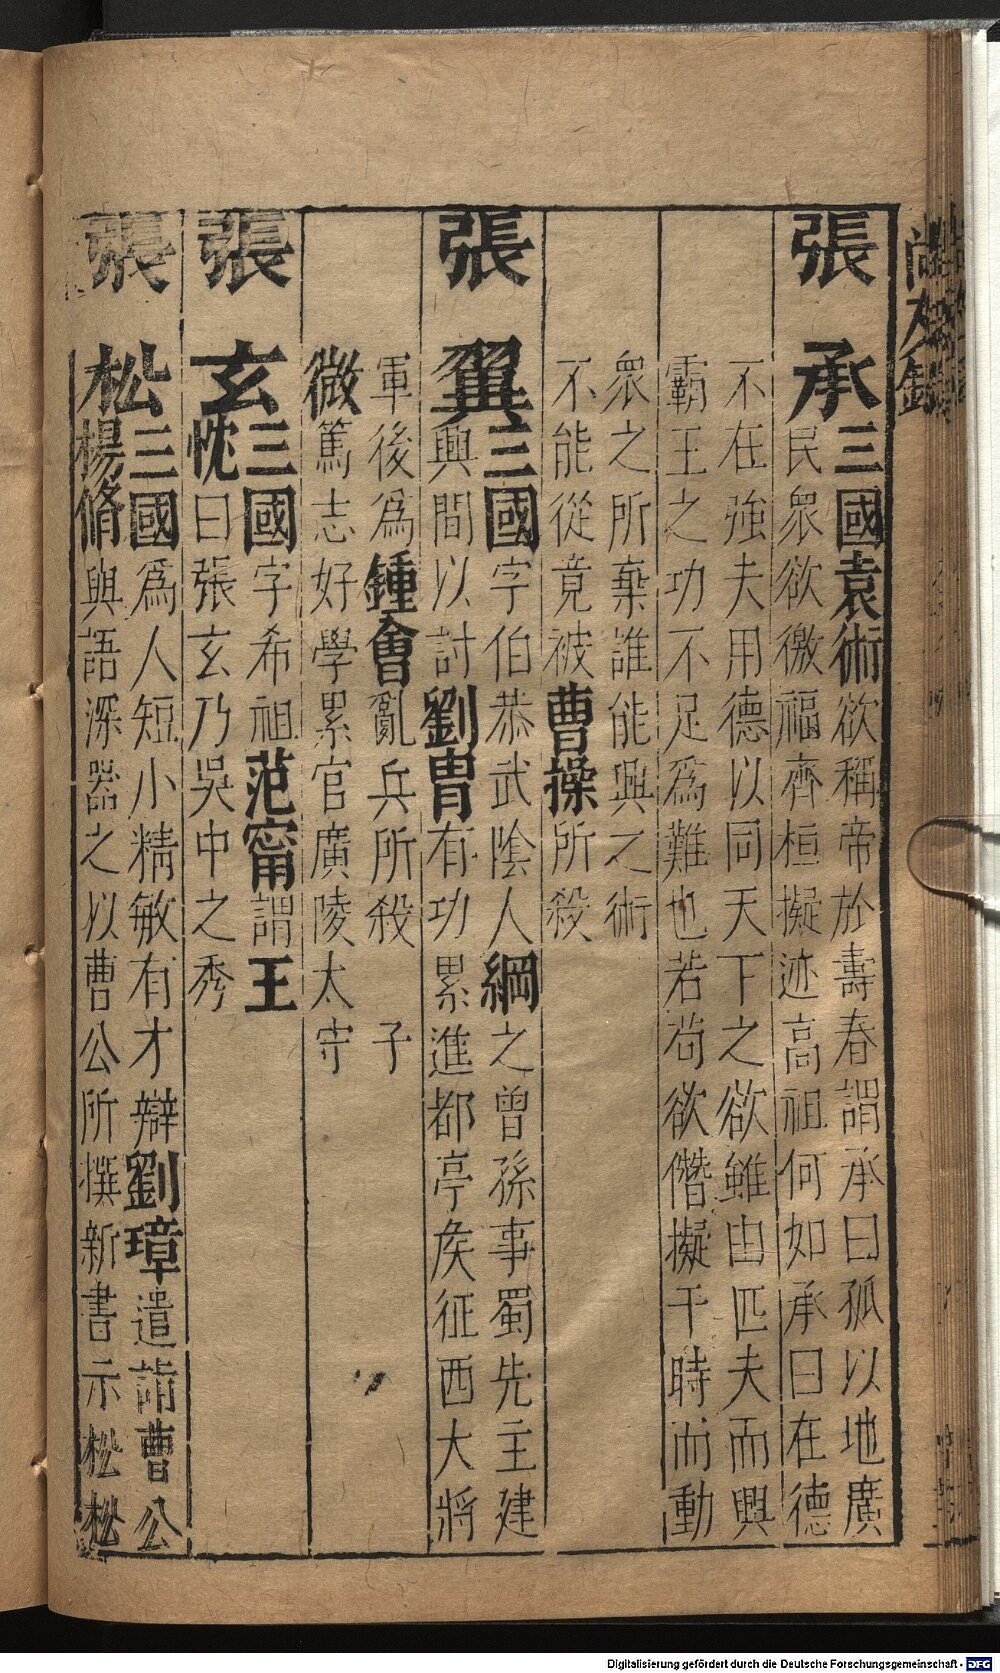 尚友錄
張承三國袁術欲稱帝於壽春謂承曰孤以地廣
民衆欲徼福齊桓擬迹高祖何如承曰在德
不在強夫用德以同天下之欲雖由匹夫而興
霸王之功不足爲難也若苟欲僭擬干時而動
衆之所棄誰能興之術
不能從竟被曹操所殺
張翼三國字伯恭武陰人綱之曾孫事蜀先主建
興間以討劉胄有功累進都亭矦征西大將
軍後爲鍾會亂兵所殺 子
微篤志好學累官廣陵太守
張玄三國字希祖范甯謂王
忱曰張玄乃吳中之秀
張松三國爲人短小精敏有才辯劉璋遣詣曹公
楊脩與語深器之以曹公所撰新書示松松
Digitalisierung gefördert durch die Deutsche Forschungsgemeinschaft - DFG